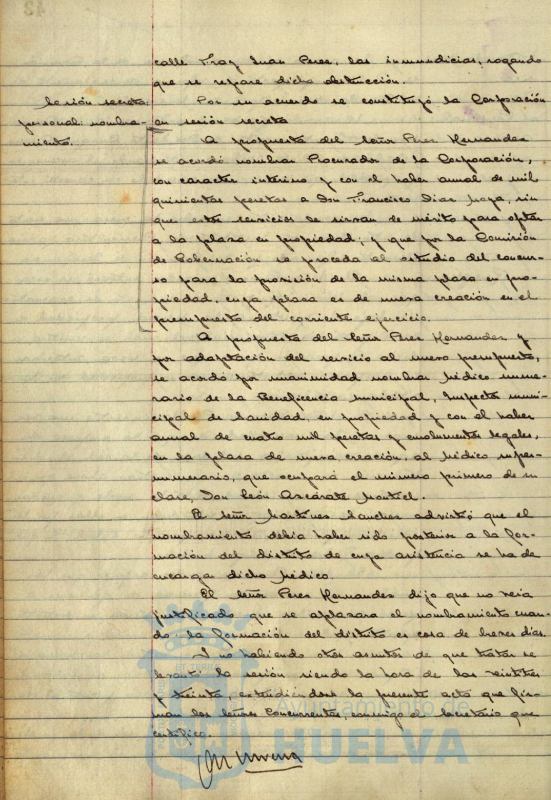 calle Fray Juan Perez, las inmundicias, rogando
que se repare dicha obstrucción.
Sesión secreta:
personal: nombra-
miento.
Por su acuerdo se constituyó la Corporación
en sesión secreta
A propuesta del Señor Perez Hernandez
se acordó nombrar Procurador de la Corporación,
con caracter interino y con el haber anual de mil
quinientas pesetas a Don Francisco Diaz, sin
que estos servicios le sirvan de mérito para optar
a la plaza en propiedad; y que por la Comisión
de Gobernación se proceda al estudio del concur-
so para la provisión de la misma plaza en pro-
piedad, cuya plaza es de nueva creación en el
presupuesto del corriente ejercicio.
A propuesta del Señor Perez Hernandez y
por adaptación del servicio al nuevo presupuesto,
se acordó por unanimidad nombrar Médico nume-
rario de la Beneficencia municipal, Inspector muni-
cipal de Sanidad, en propiedad y con el haber
anual de cuatro mil pesetas y emolumentos legales,
en la plaza de nueva creación, al Médico super-
numerario, que ocupará el número primero de su
clase, Don León Azcárate Montiel.
El Señor Martinez Sanchez advirtió que el
nombramiento debia haber sido posterior a la for-
mación del distrito de cuya asistencia se ha de
encargar dicho Médico.
El Señor Perez Hernandez dijo que no veia
justificado que se aplazara el nombramiento cuan-
do la formación del distrito es cosa de breves dias.
Y no habiendo otros asuntos de que tratar se
levantó la sesión siendo la hora de las veintitres
y treinta, extendiendose la presente acta que fir-
man los Señores Concurrentes, conmigo el Secretario que
certifico.
Ayuntamiento de
HUELVA